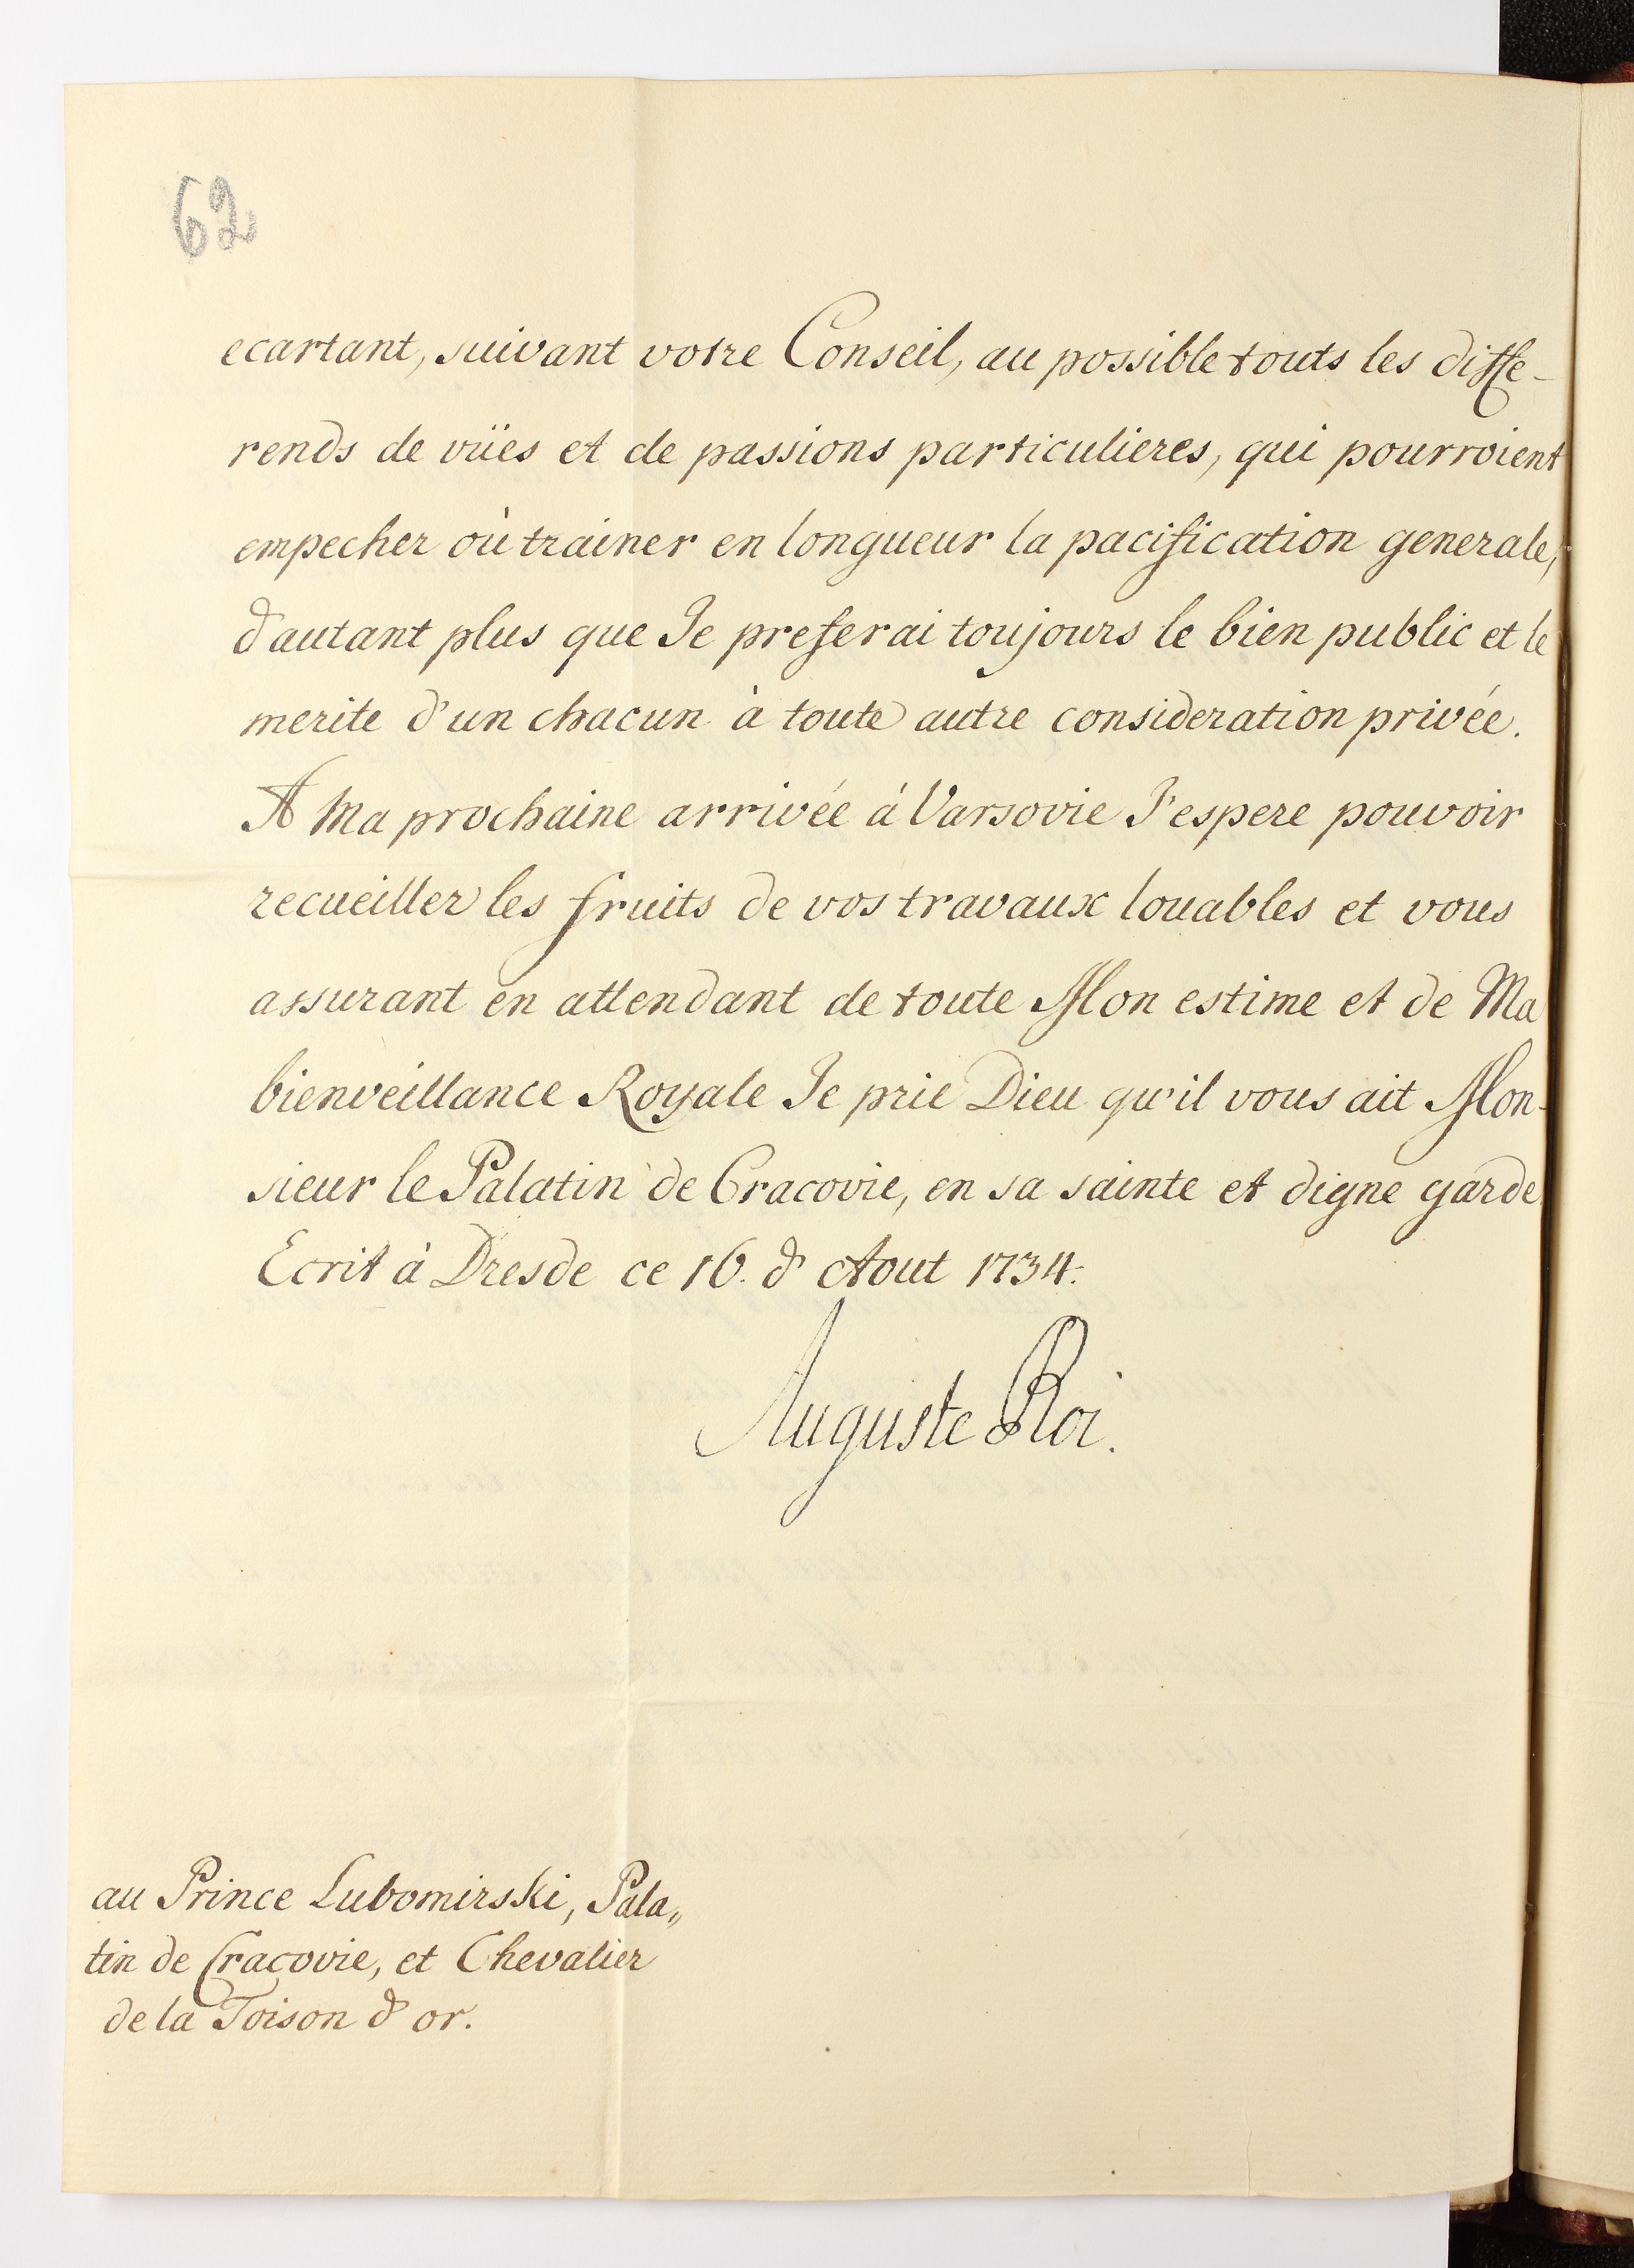 62
ecartant, suivant votre Conseil, au possible touts les diffe-
rends de vües et de passions particulieres, qui pourroient
empecher où trainer en longueur la pacification generale,
d'autant plus que Je preferai toujours le bien public et le
merite d'un chacun à toute autre consideration privée.
A Ma prochaine arrivée à Varsovie J'espere pouvoir
recueiller les fruits de vos travaux louables et vous
assurant en attendant de toute Mon estime et de Ma
bienveillance Royale Je prie Dieu qu'il vous ait Mon-
sieur le Palatin de Cracovie, en sa sainte et digne garde.
Ecrit à Dresde ce 16. d'Aout 1734.
Auguste Roi.
au Prince Lubomirski, Pala„
tin de Cracovie, et Chevalier
de la Toison d'or.